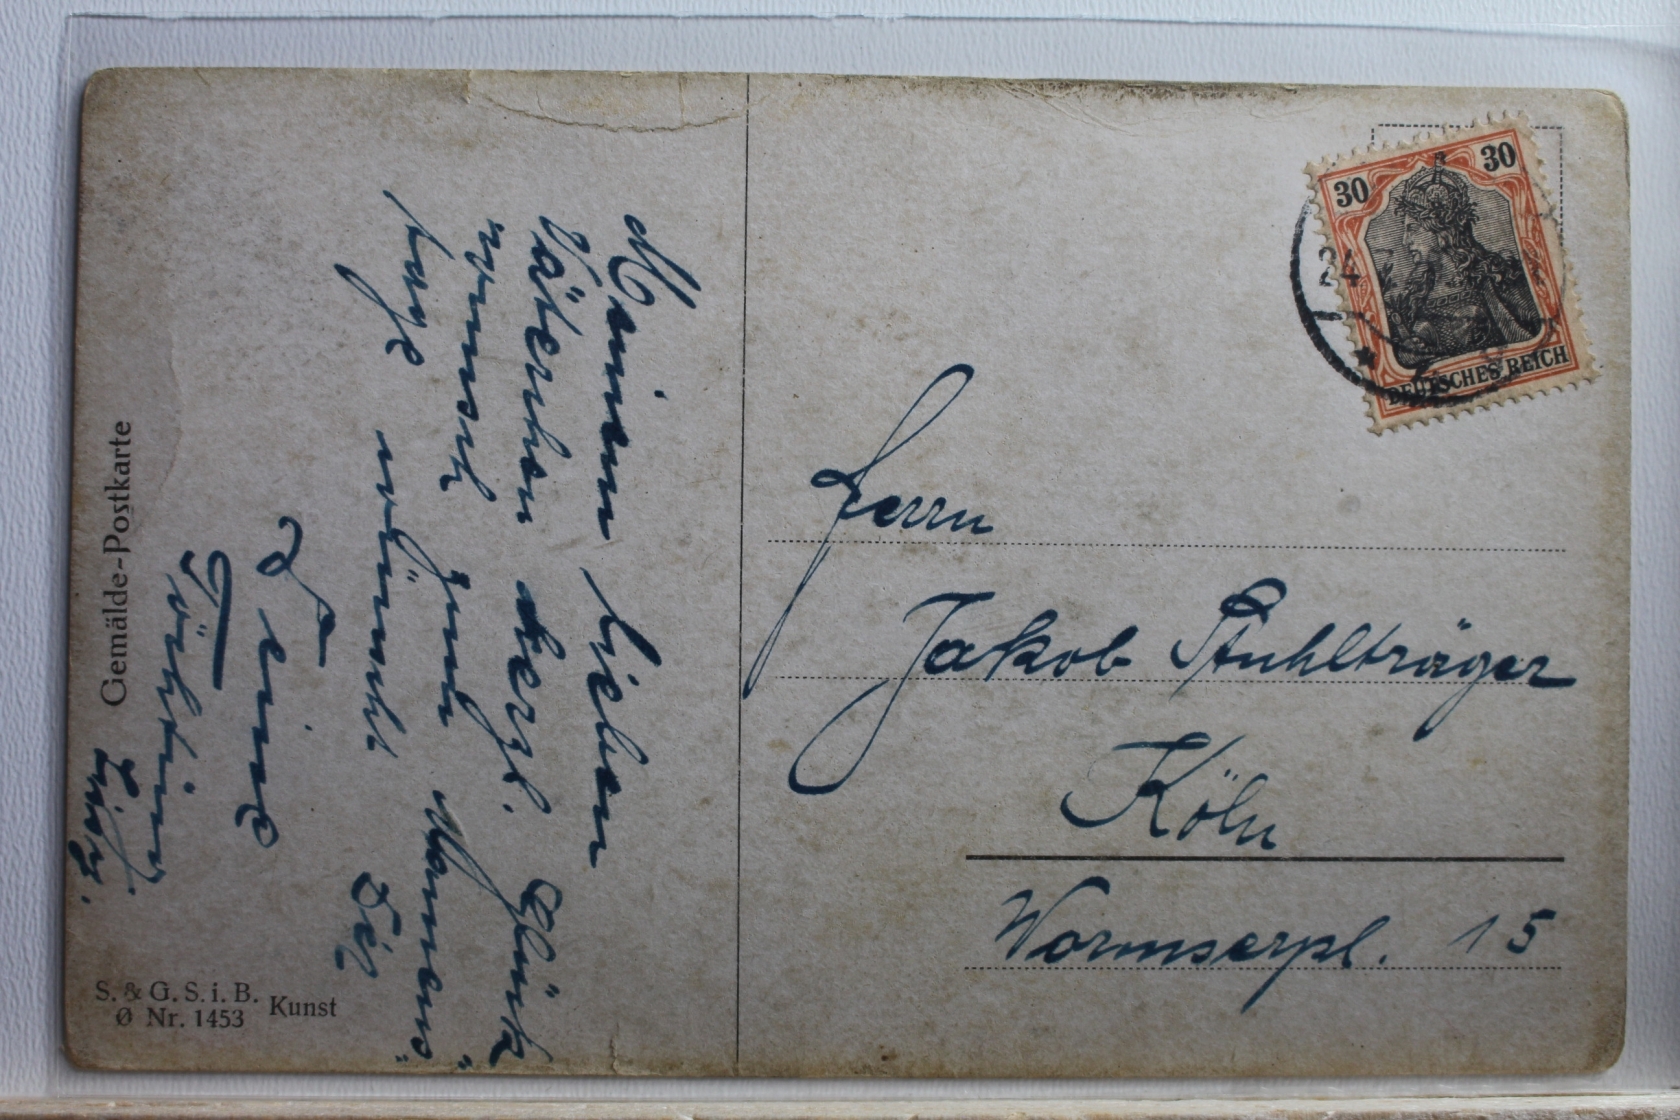 Meinem lieben
Väterchen herzl. Glück
"wunsch zum Namens"
tage wünscht Dir
Deine
Töchting
Gemälde-Postkarte
S. & G. S. i. B.
Ø Nr. 1453
Kunst
30
30
DEUTSCHES REICH
24
Herrn
Jakob Stuhlträger
Köln
Wormserpl. 15